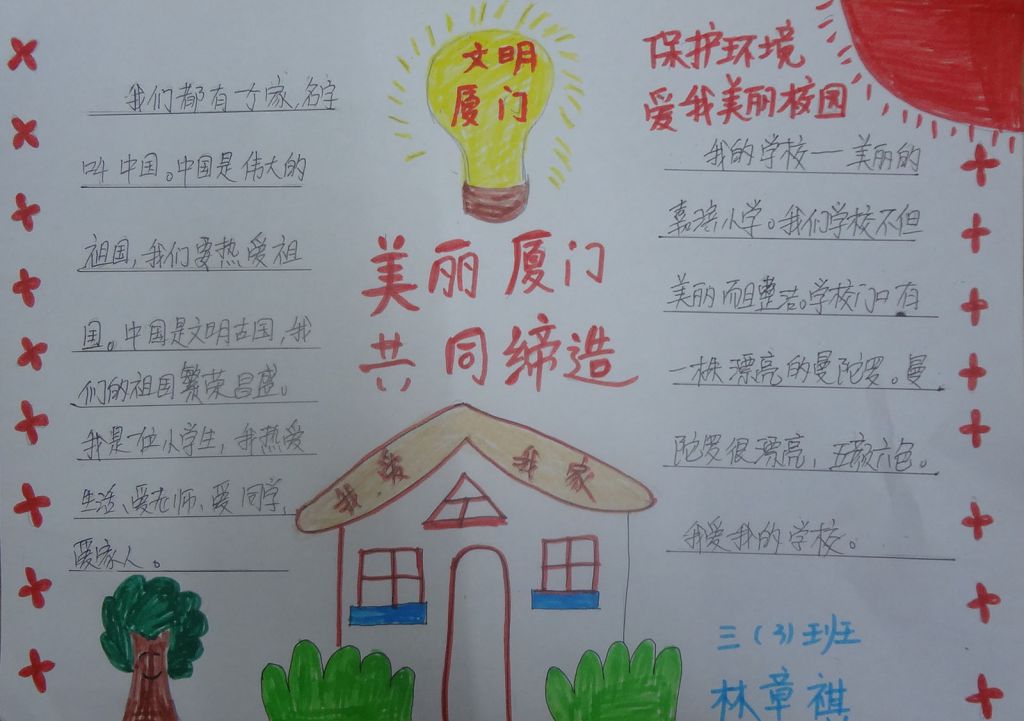 文明
厦门
保护环境
爱我美丽校园
美丽厦门
共同缔造
我爱我家
我们都有一个家,名字
叫中国。中国是伟大的
祖国,我们要热爱祖
国。中国是文明古国,我
们的祖国繁荣昌盛。
我是一位小学生,我热爱
生活、爱老师、爱同学,
爱家人。
我的学校——美丽的
嘉滨小学。我们学校不但
美丽而且整洁。学校门口有
一株漂亮的曼陀罗。曼
陀罗很漂亮,五颜六色。
我爱我的学校。
三(3)班
林章祺